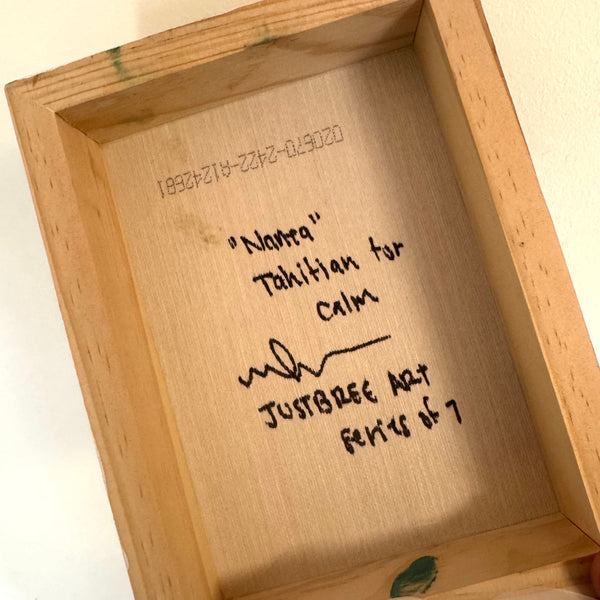 020670-2422-A1242681
"Nanea"
Tahitian for
calm
JUSTBREE ART
series of 7